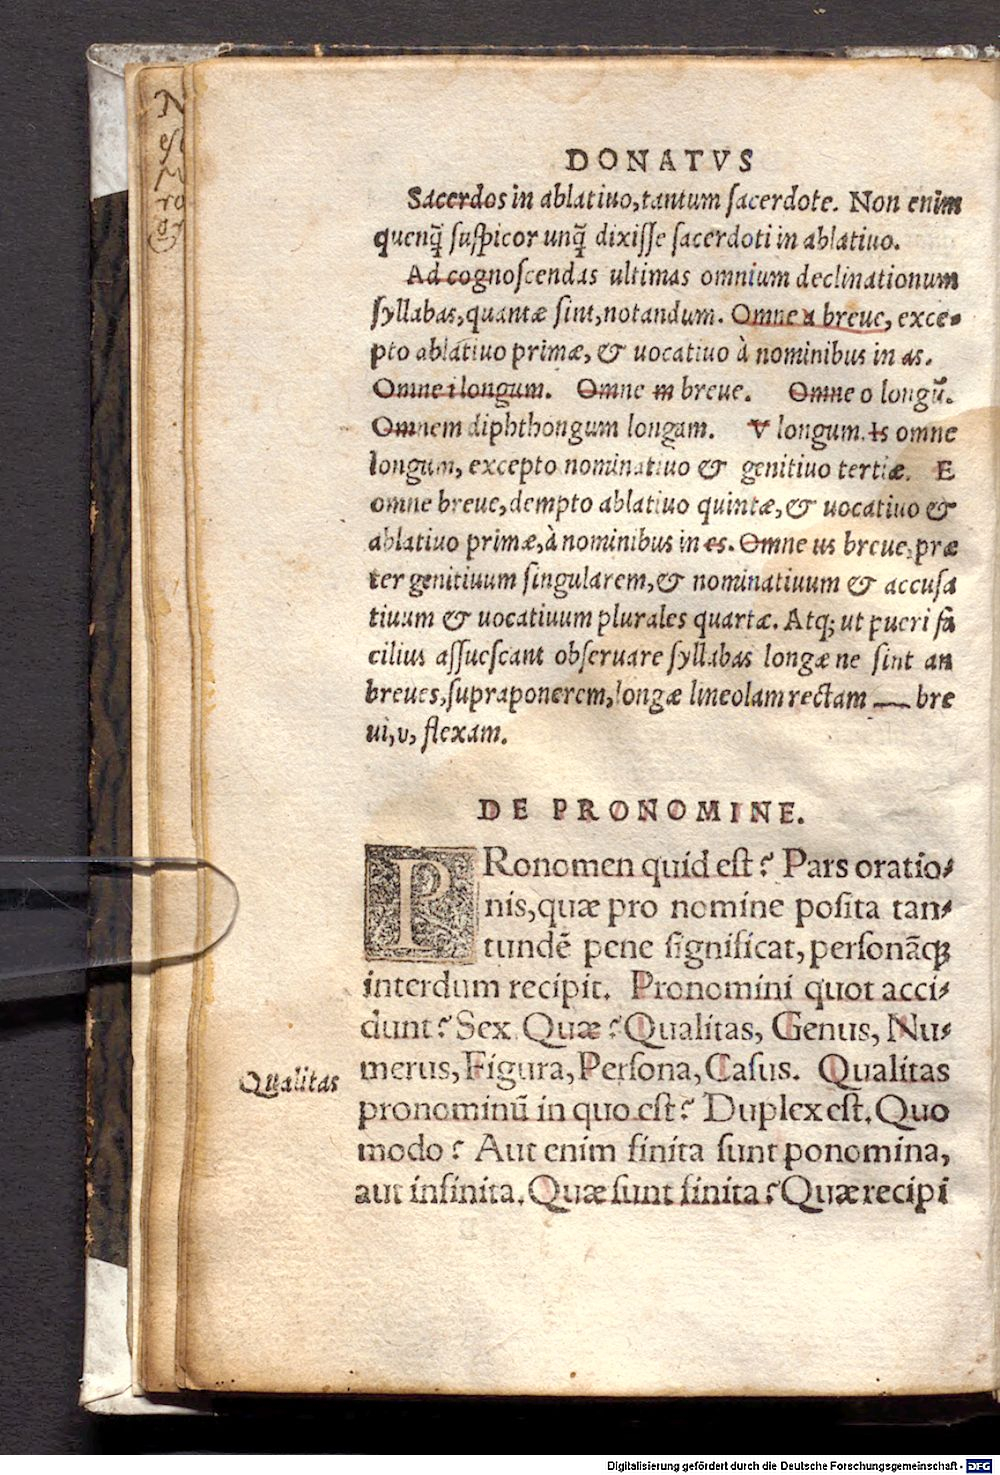 DONATVS
Sacerdos in ablatiuo, tantum ſacerdote. Non enim
quenq̃ ſuſpicor unq̃ dixiſſe ſacerdoti in ablatiuo.
Ad cognoſcendas ultimas omnium declinationum
ſyllabas, quantæ ſint, notandum. Omne a breue, exce-
pto ablatiuo primæ, & uocatiuo à nominibus in as.
Omne i longum. Omne m breue. Omne o longũ.
Omnem diphthongum longam. V longum. Is omne
longum, excepto nominatiuo & genitiuo tertiæ. E
omne breue, dempto ablatiuo quintæ, & uocatiuo &
ablatiuo primæ, à nominibus in es. Omne us breue, præ
ter genitiuum ſingularem, & nominatiuum & accuſa
tiuum & uocatiuum plurales quartæ. Atq; ut pueri fa
cilius aſſueſcant obſeruare ſyllabas longæ ne ſint an
breues, ſupraponerem, longæ lineolam rectam — bre
ui, υ, flexam.
DE PRONOMINE.
PRonomen quid eſt? Pars oratio-
nis, quæ pro nomine poſita tan-
tundẽ pene ſignificat, perſonãq;
interdum recipit. Pronomini quot acci-
dunt? Sex. Quæ? Qualitas, Genus, Nu-
merus, Figura, Perſona, Caſus. Qualitas
Qualitas
pronominũ in quo eſt? Duplex eſt. Quo
modo? Aut enim finita ſunt ponomina,
aut infinita. Quæ ſunt finita? Quæ recipi
Digitalisierung gefördert durch die Deutsche Forschungsgemeinschaft - DFG